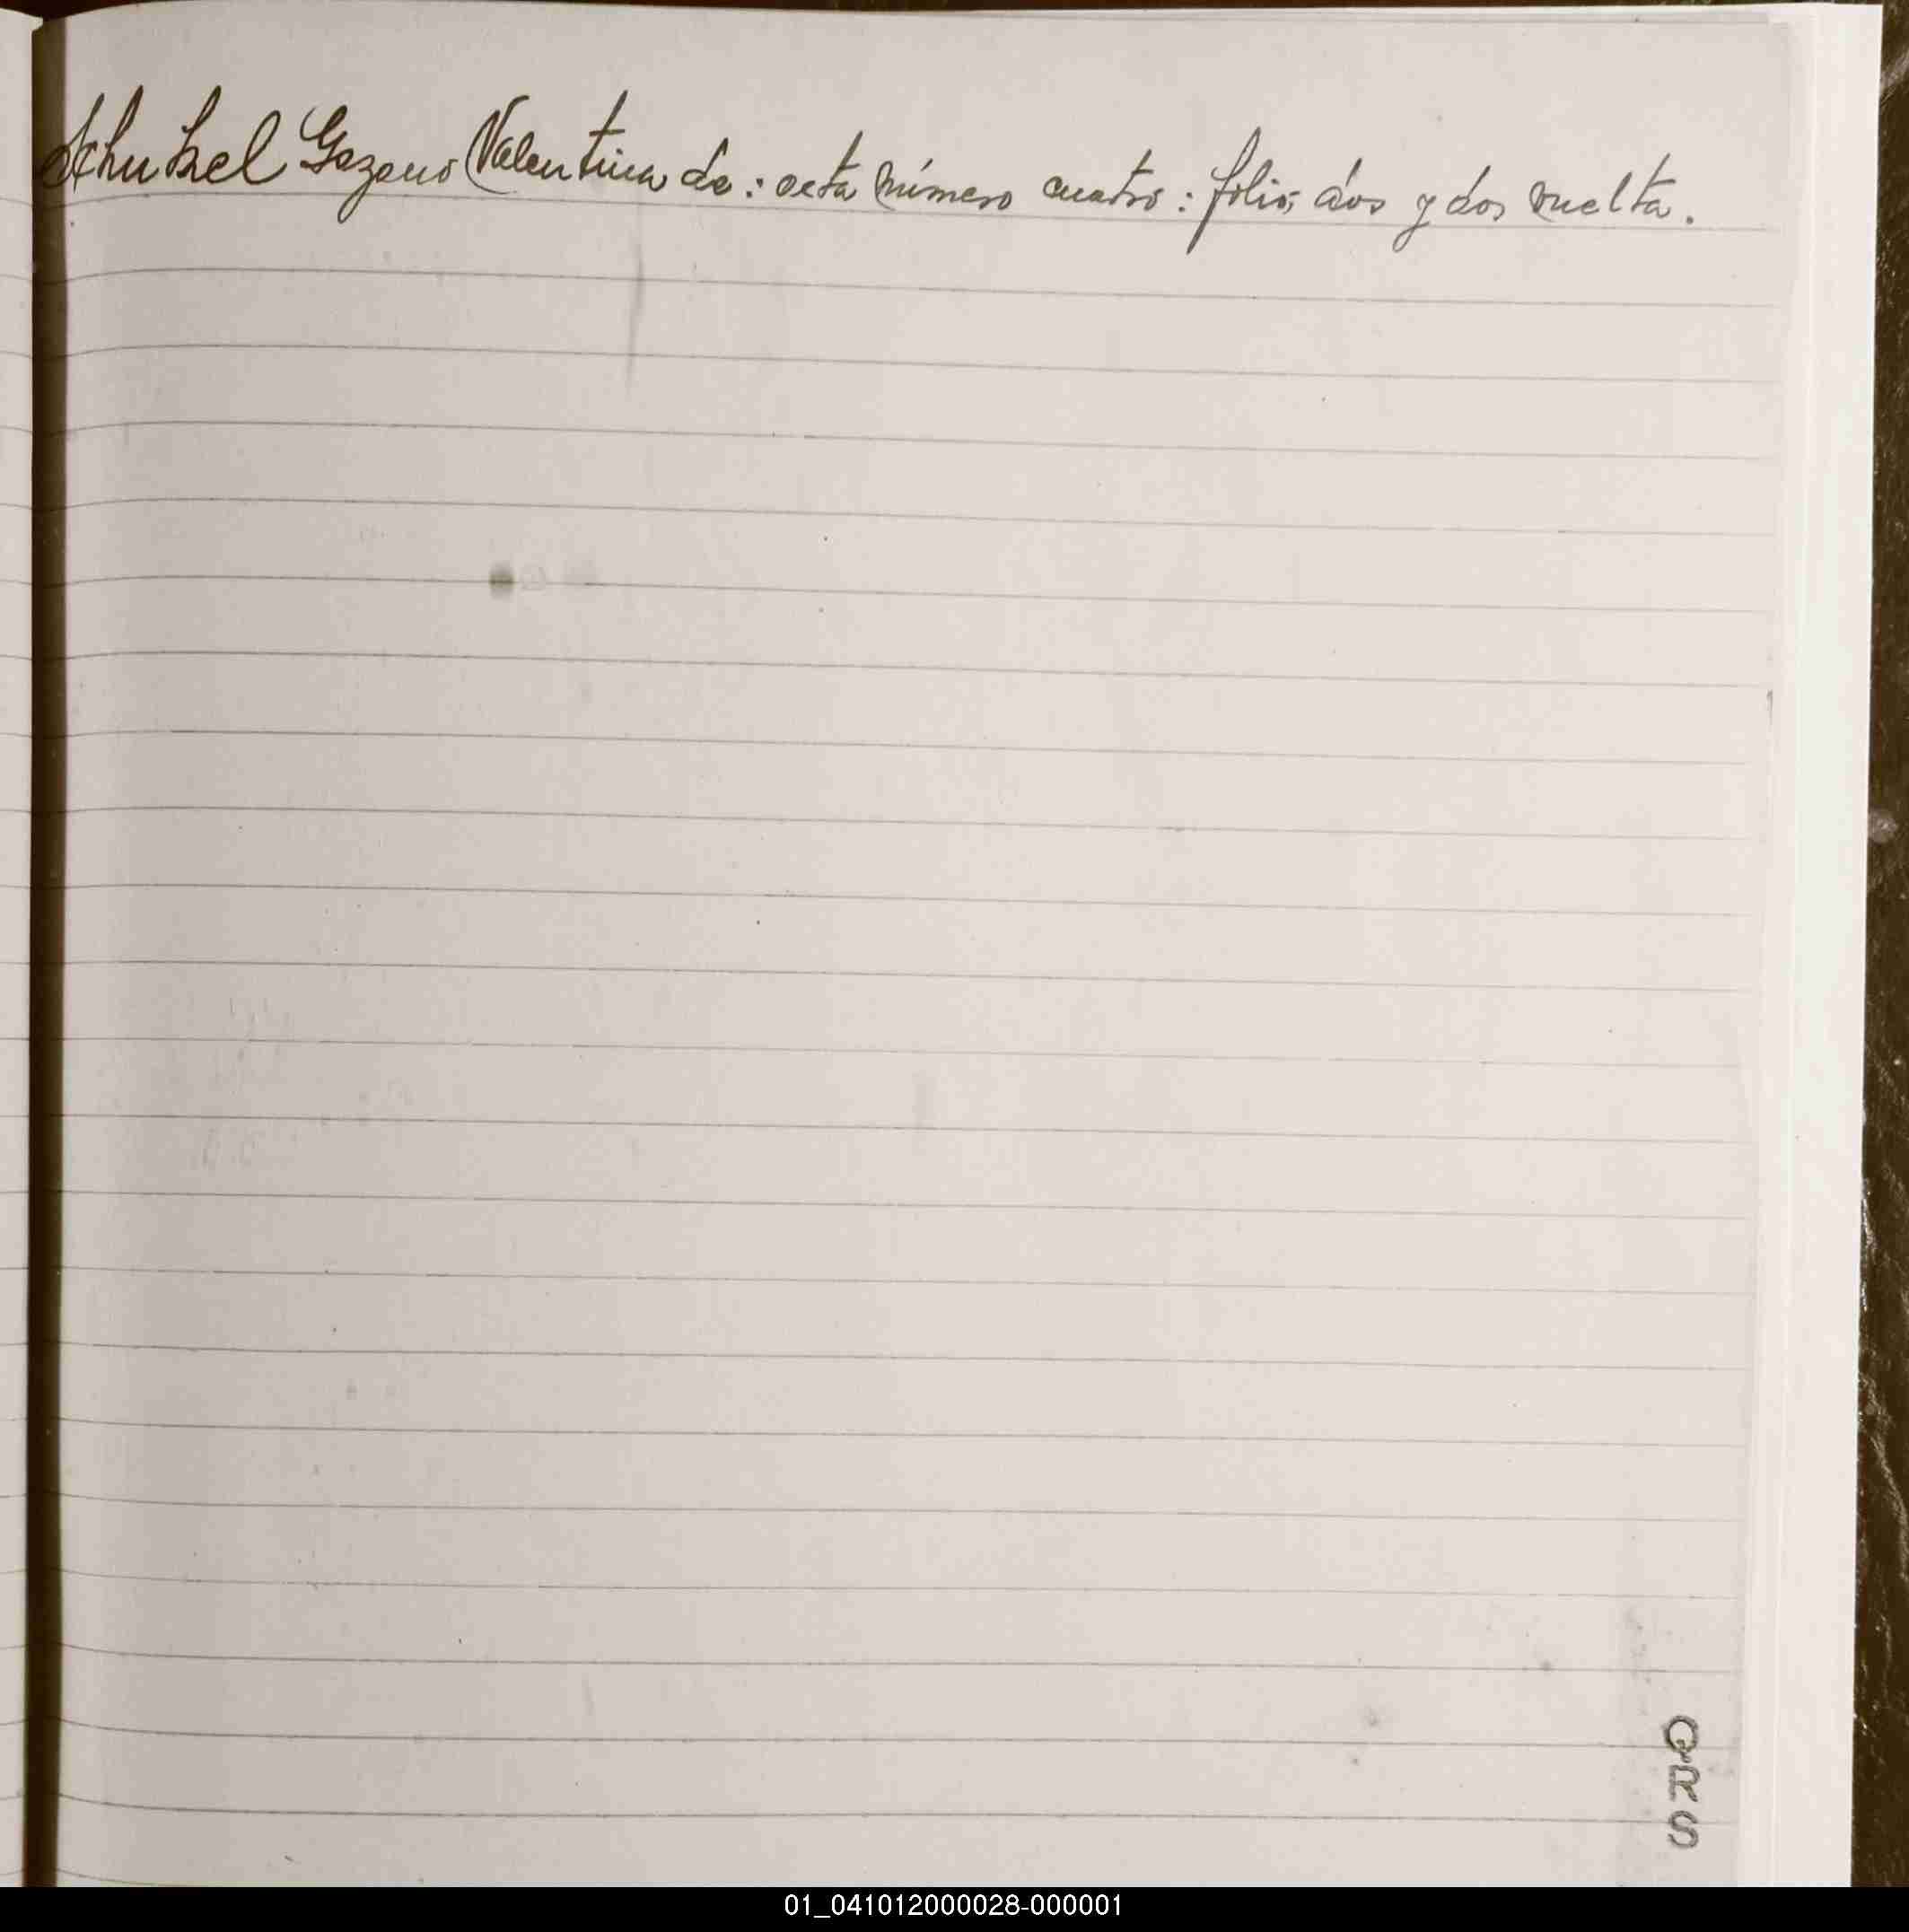 Schukel Gazano Valentina de: acta número cuatro: folios dos y dos vuelta.
QRS
01_041012000028-000001